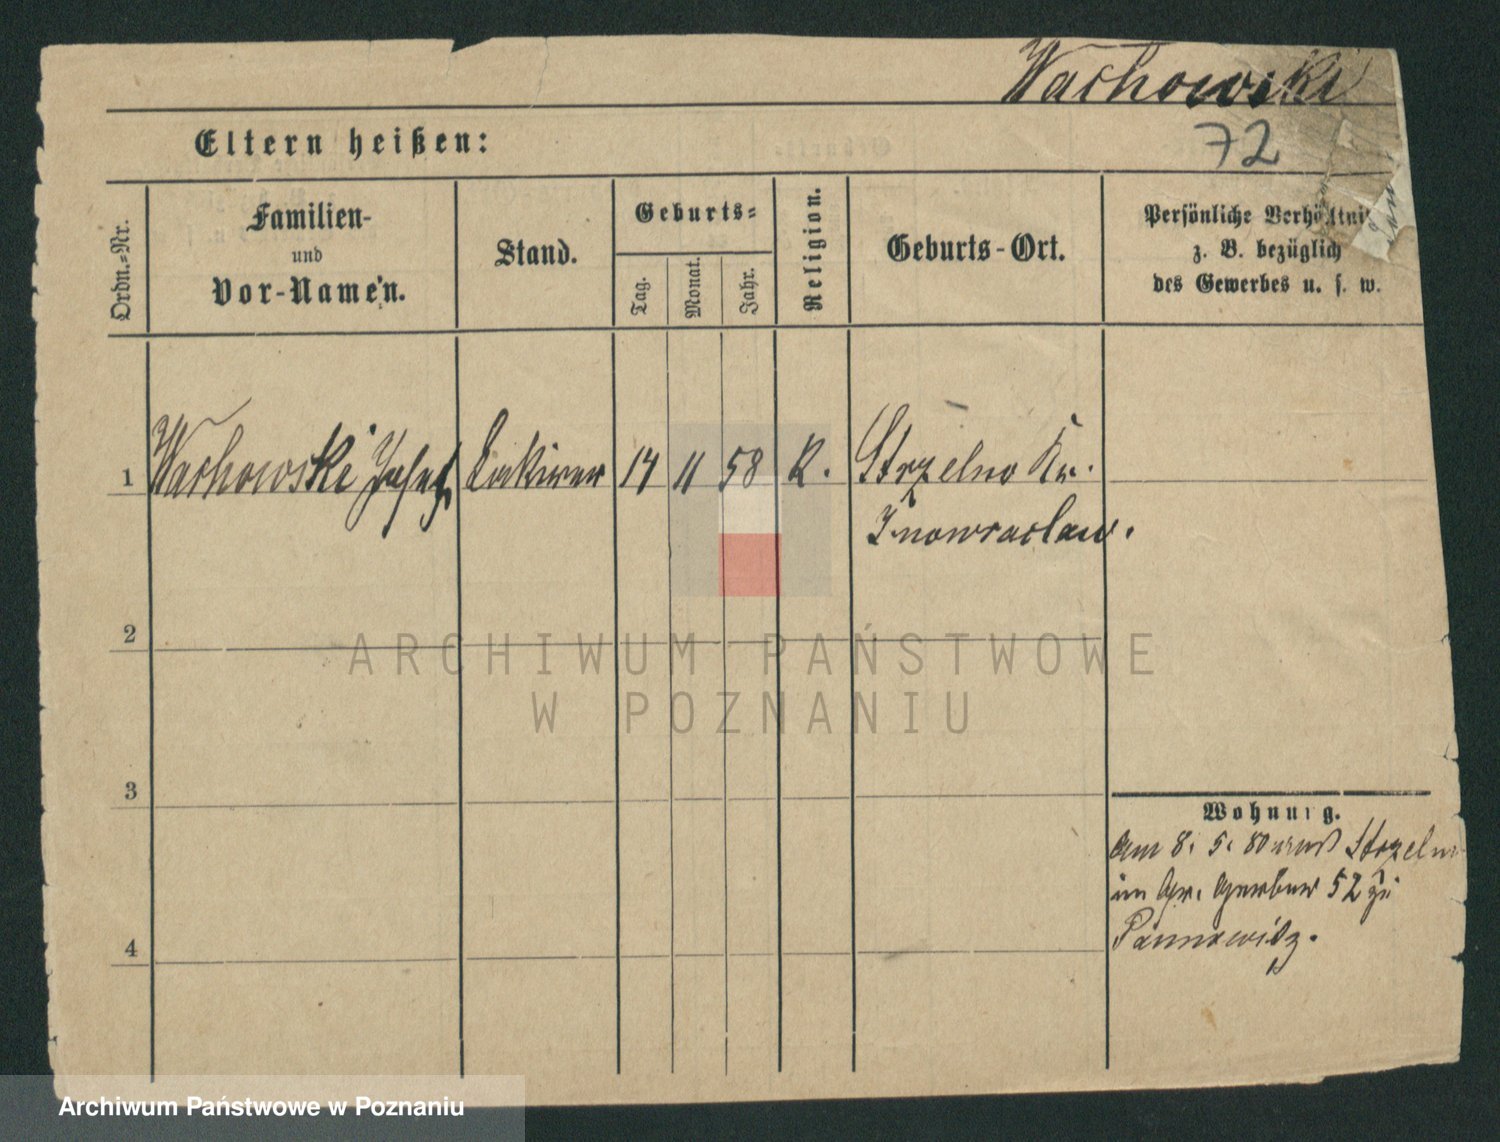 Wachowski
72
Eltern heißen:
Ordn.-Nr.
Familien-
und
Vor-Namen.
Stand.
Geburts-
Tag.
Monat.
Jahr.
Religion.
Geburts-Ort.
Persönliche Verhältni
z. B. bezüglich
des Gewerbes u. s. w.
1 Wachowski Josef Lakirer 14 11 58 K. Strzelno Kr.
Inowraclaw.
2
3
4
Wohnung.
Am 8. 5. 80 Strzeln
im Gr. Gerber 52 zu
Pannewitz.
ARCHIWUM PAŃSTWOWE
W POZNANIU
Archiwum Państwowe w Poznaniu